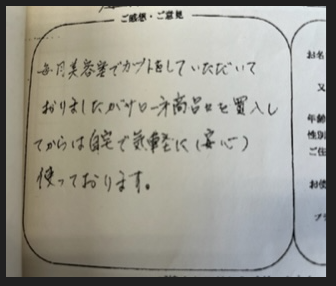 ご感想・ご意見
毎月美容室でカットをしていただいて
おりましたがサローネ商品を買入し
てからは自宅で気軽に（安心）
使っております。
お名
又
年齢
性別
ご住
お使
プラ